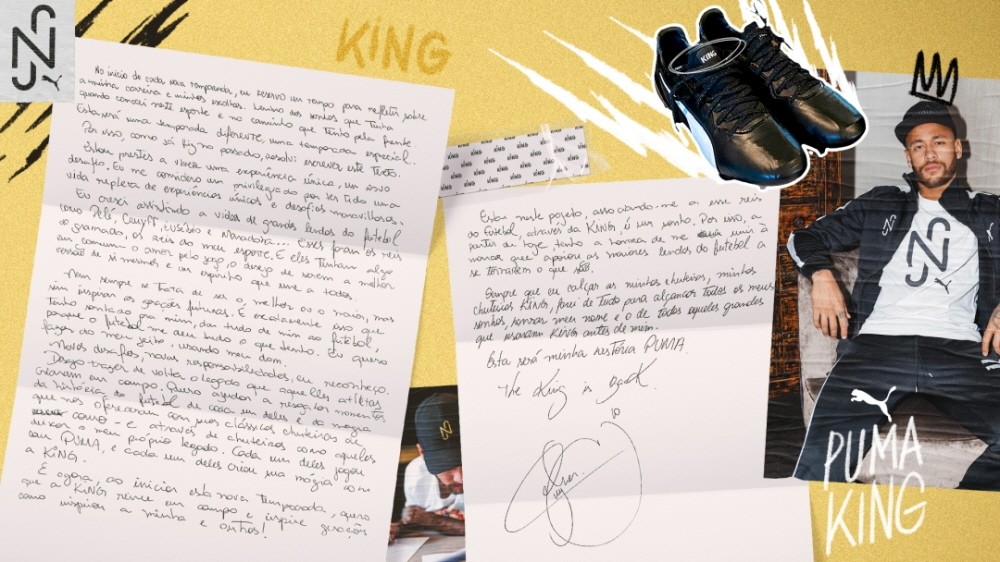 KING
No início de cada nova temporada, eu reservo um tempo para refletir sobre
a minha carreira e minhas escolhas. Lembro dos sonhos que tinha
quando comecei neste esporte e no caminho que tenho pela frente
Esta será uma temporada diferente, uma temporada especial.
Por isso, como já fiz no passado, resolvi escrever este texto.
Estou prestes a viver uma experiência única, um novo
desafio. Eu me considero um privilegiado por ter tido uma
vida repleta de experiências únicas e desafios maravilhosos.
Eu cresci assistindo a vídeos de grandes lendas do futebol
como Pelé, Cruyff, Eusébio e Maradona... Esses foram os reis
do gramado, os reis do meu esporte. E eles tinham algo
em comum: o amor pelo jogo, o desejo de serem a melhor
versão de si mesmos e um espírito que une a todos.
Nem sempre se trata de ser o melhor ou o maior, mas
sim inspirar as gerações futuras. E exatamente isso que
tenho sonhado por mim, dar tudo de mim ao futebol,
porque o futebol me deu tudo o que tenho. Eu quero
fazer do meu jeito, usando meu dom.
Novos desafios, novas responsabilidades, eu reconheço.
Desejo trazer de volta o legado que aqueles atletas
criaram em campo. Quero ajudar a resgatar momentos
da história do futebol de cada um deles e da magia
que nos ofereceram com suas clássicas chuteiras
como - e através de chuteiras como aquelas
deixar o meu próprio legado. Cada um deles jogou
com PUMA, e cada um deles criou sua mágica com
a KING.
E agora, ao iniciar esta nova temporada, quero
que a KING reine em campo e inspire gerações
como inspirou a minha e outras!
KING KING KING KING KING
Estar neste projeto, associando-me a esses reis
do futebol, através da KING, é um sonho. Por isso, a
partir de hoje, tenho a honra de me unir à
marca que apoiou as maiores lendas do futebol a
se tornarem o que são.
Sempre que eu calçar as minhas chuteiras, minhas
chuteiras KING, farei de tudo para alcançar todos os meus
sonhos, honrar meu nome e o de todos aqueles grandes
que usaram KING antes de mim.
Esta será minha história PUMA.
The King is back.
10
KING
PUMA
KING